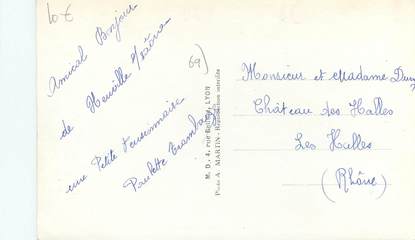 10 €
Amical Bonjour
de Neuville s/Saône
une Petite Pensionnaire
Paulette
69)
M. D. 4, rue LYON
Photo A. MARTIN - Reproduction interdite
Monsieur et Madame
Château des Halles
Les Halles
(Rhône)